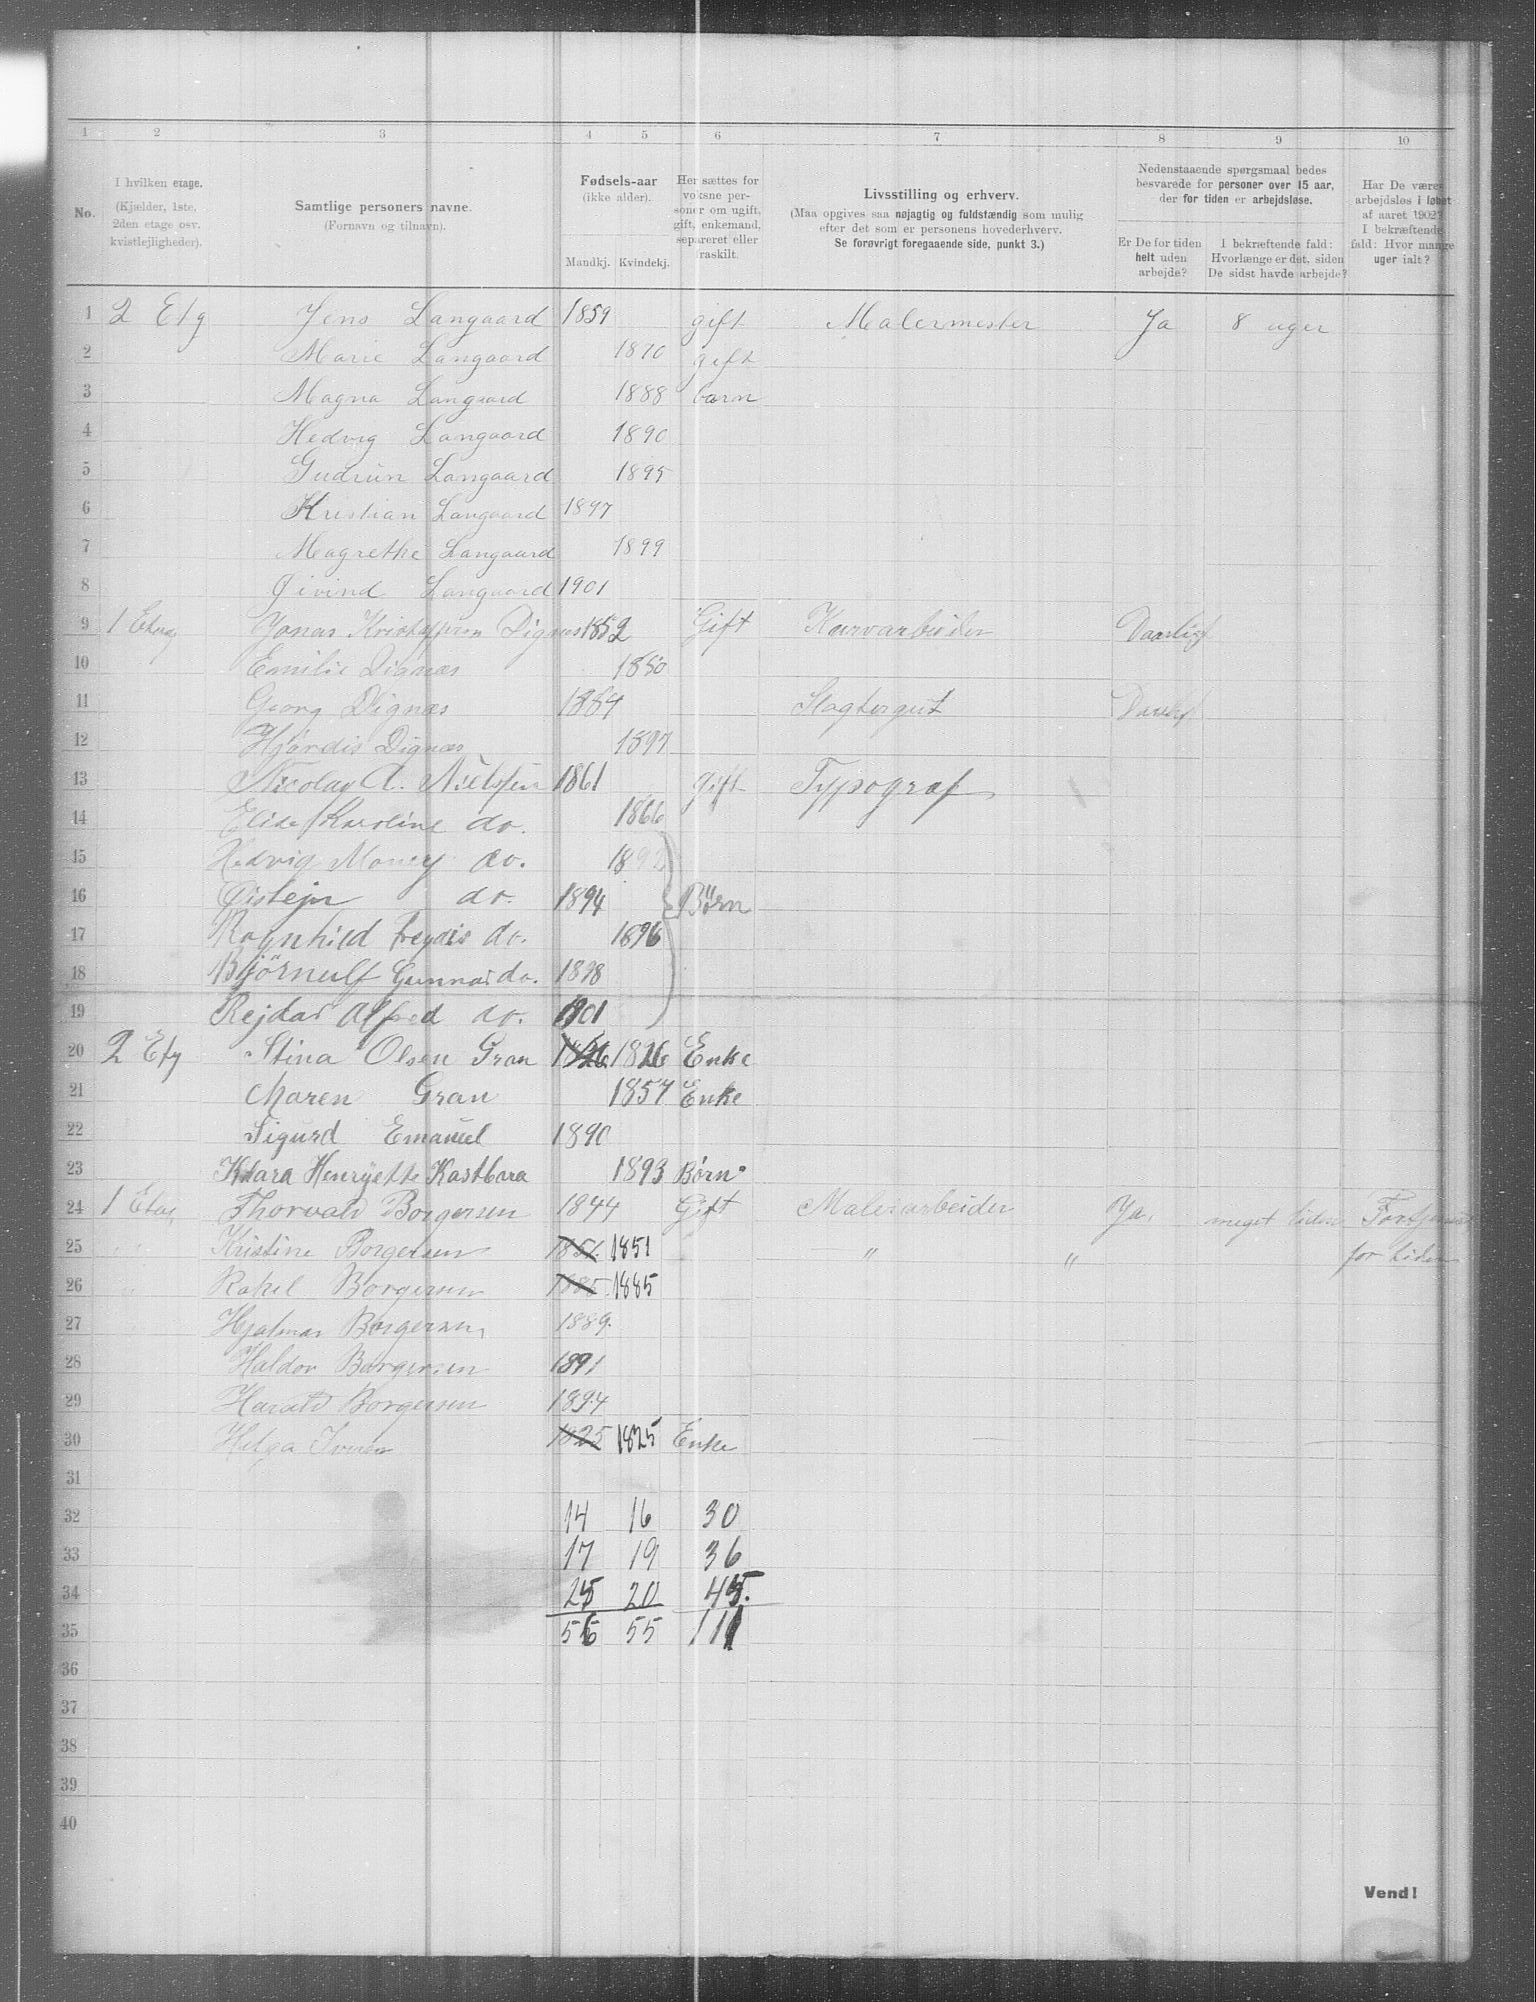 1 2 3 4 5 6 7 8 9 10
No.
I hvilken etage. (Kjælder, 1ste, 2den etage osv. kvistlejligheder).
Samtlige personers navne. (Fornavn og tilnavn).
Fødsels-aar (ikke alder).
Mandkj. Kvindekj.
Her sættes for voksne personer om ugift, gift, enkemand, separeret eller fraskilt.
Livsstilling og erhverv.
(Maa opgives saa nøjagtig og fuldstændig som mulig efter det som er personens hovederhverv.
Se forøvrigt foregaaende side, punkt 3.)
Nedenstaaende spørgsmaal bedes besvarede for personer over 15 aar, der for tiden er arbejdsløse.
Er De for tiden helt uden arbejde?
I bekræftende fald: Hvorlænge er det, siden De sidst havde arbejde?
Har De været arbejdsløs i løbet af aaret 1902? I bekræftende fald: Hvor mange uger ialt?
1 2 Etg Jens Langaard 1859 gift Malermester Ja 8 uger
2 Marie Langaard 1870 gift
3 Magna Langaard 1888 barn
4 Hedvig Langaard 1890
5 Gudrun Langaard 1895
6 Kristian Langaard 1897
7 Magrethe Langaard 1899
8 Øivind Langaard 1901
9 1 Etag Jonas Kristoffersen Dignæs 1852 Gift Kurvarbeider Daarligt
10 Emilie Dignæs 1850
11 Georg Dignæs 1884 Slagtergut
12 Hjørdis Dignæs 1897
13 Nicolay A. Nielsen 1861 gift Typograf
14 Elise Karoline do. 1866
15 Hedvig do. 1892
16 Øistejn do. 1894 Børn
17 Ragnhild Freydis do. 1896
18 Bjørnulf Gunnar do. 1898
19 Rejdar Alfred do. 1901
20 2 Etg Stina Olsen Gran 1826 1826 Enke
21 Maren Gran 1857 Enke
22 Sigurd Emanuel 1890
23 Klara Henryette Kastbara 1893 Børn
24 1 Etag Thorvald Borgersen 1844 Gift Malerarbeider Ja. meget liden
25 " " Kristine Borgersen 1851 1851 " " for tiden
26 " Rakel Borgersen 1885 1885
27 Hjalmar Borgersen 1889.
28 Haldor Borgersen 1891
29 Harald Borgersen 1894
30 Helga Iversen 1825 1825 Enke
31
32 14 16 30
33 17 19 36
34 25 20 45.
35 56 55 111
36
37
38
39
40
Vend!